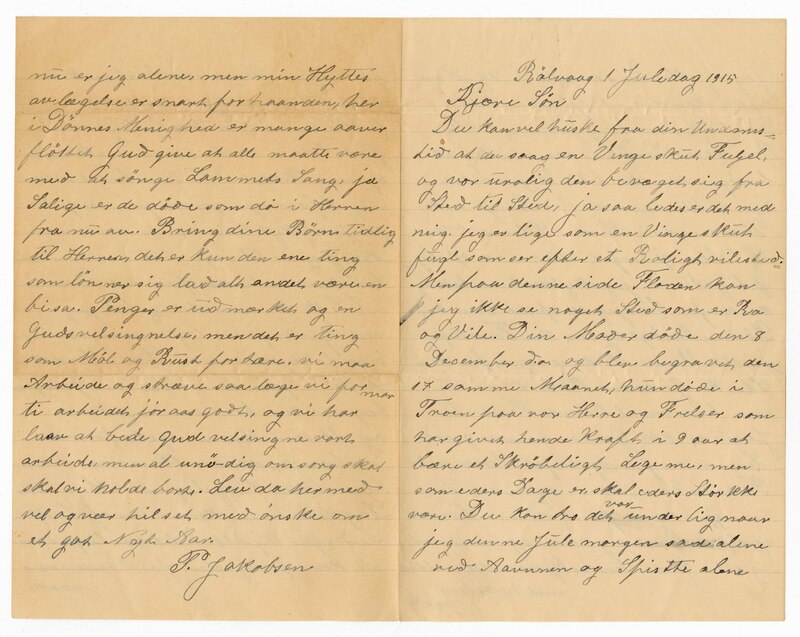 Rölvaag 1 Juledag 1915
Kjære Søn
Du kan vel huske fra din Undoms=
tid at du saag en Vinge skut Fugel,
og vor urolig den bevæget sig fra
Sted til Sted, ja saa ledes er det med
meig. jeg er lige som en Vinge skut
fugl som ser efter et Roligt vilested.
Men paa denne side Floden kan
jeg ikke se noget Sted som er Ro
og Vile. Din Moder döde den 8
December d.a. og blev begravet den
17 samme Maanet, hun döde i
Troen paa vor Herre og Frelser som
har givet hende Kraft i 9 aar at
bære et Skröbeligt Legeme, men
som eders Dage er skal eders Størkke
være. Du kan tro det var underlig naar
jeg denne Jule morgen sad alene
ved Aavnnen og Spiste alene
nu er jeg alene, men min Hyttes
avlægelse er snart forhaanden, her
i Dönnes Menighed er mange aaver
flöttet Gud give at alle maatte være
med at sönge Lammets Sang, ja
Salige er de döde som dö i Herren
fra nu av. Bring dine Börn tidlig
til Herren, det er kun den ene ting
som lönner sig lad alt andet være en
bisa. Penger er udmærket og en
Gudsvelsingnelse, men det er ting
som Möl og Rust fortære, vi maa
Arbeide og stræve saa læge vi for mar
ti arbeidet jör aas godt, og vi har
laav at bede Gud velsingne vort
arbeide, men al unödig omsorg skal
skal vi holde bort. Lev da her med
vel og vær hilset med önske om
et got Nyt Aar.
P. Jakobsen